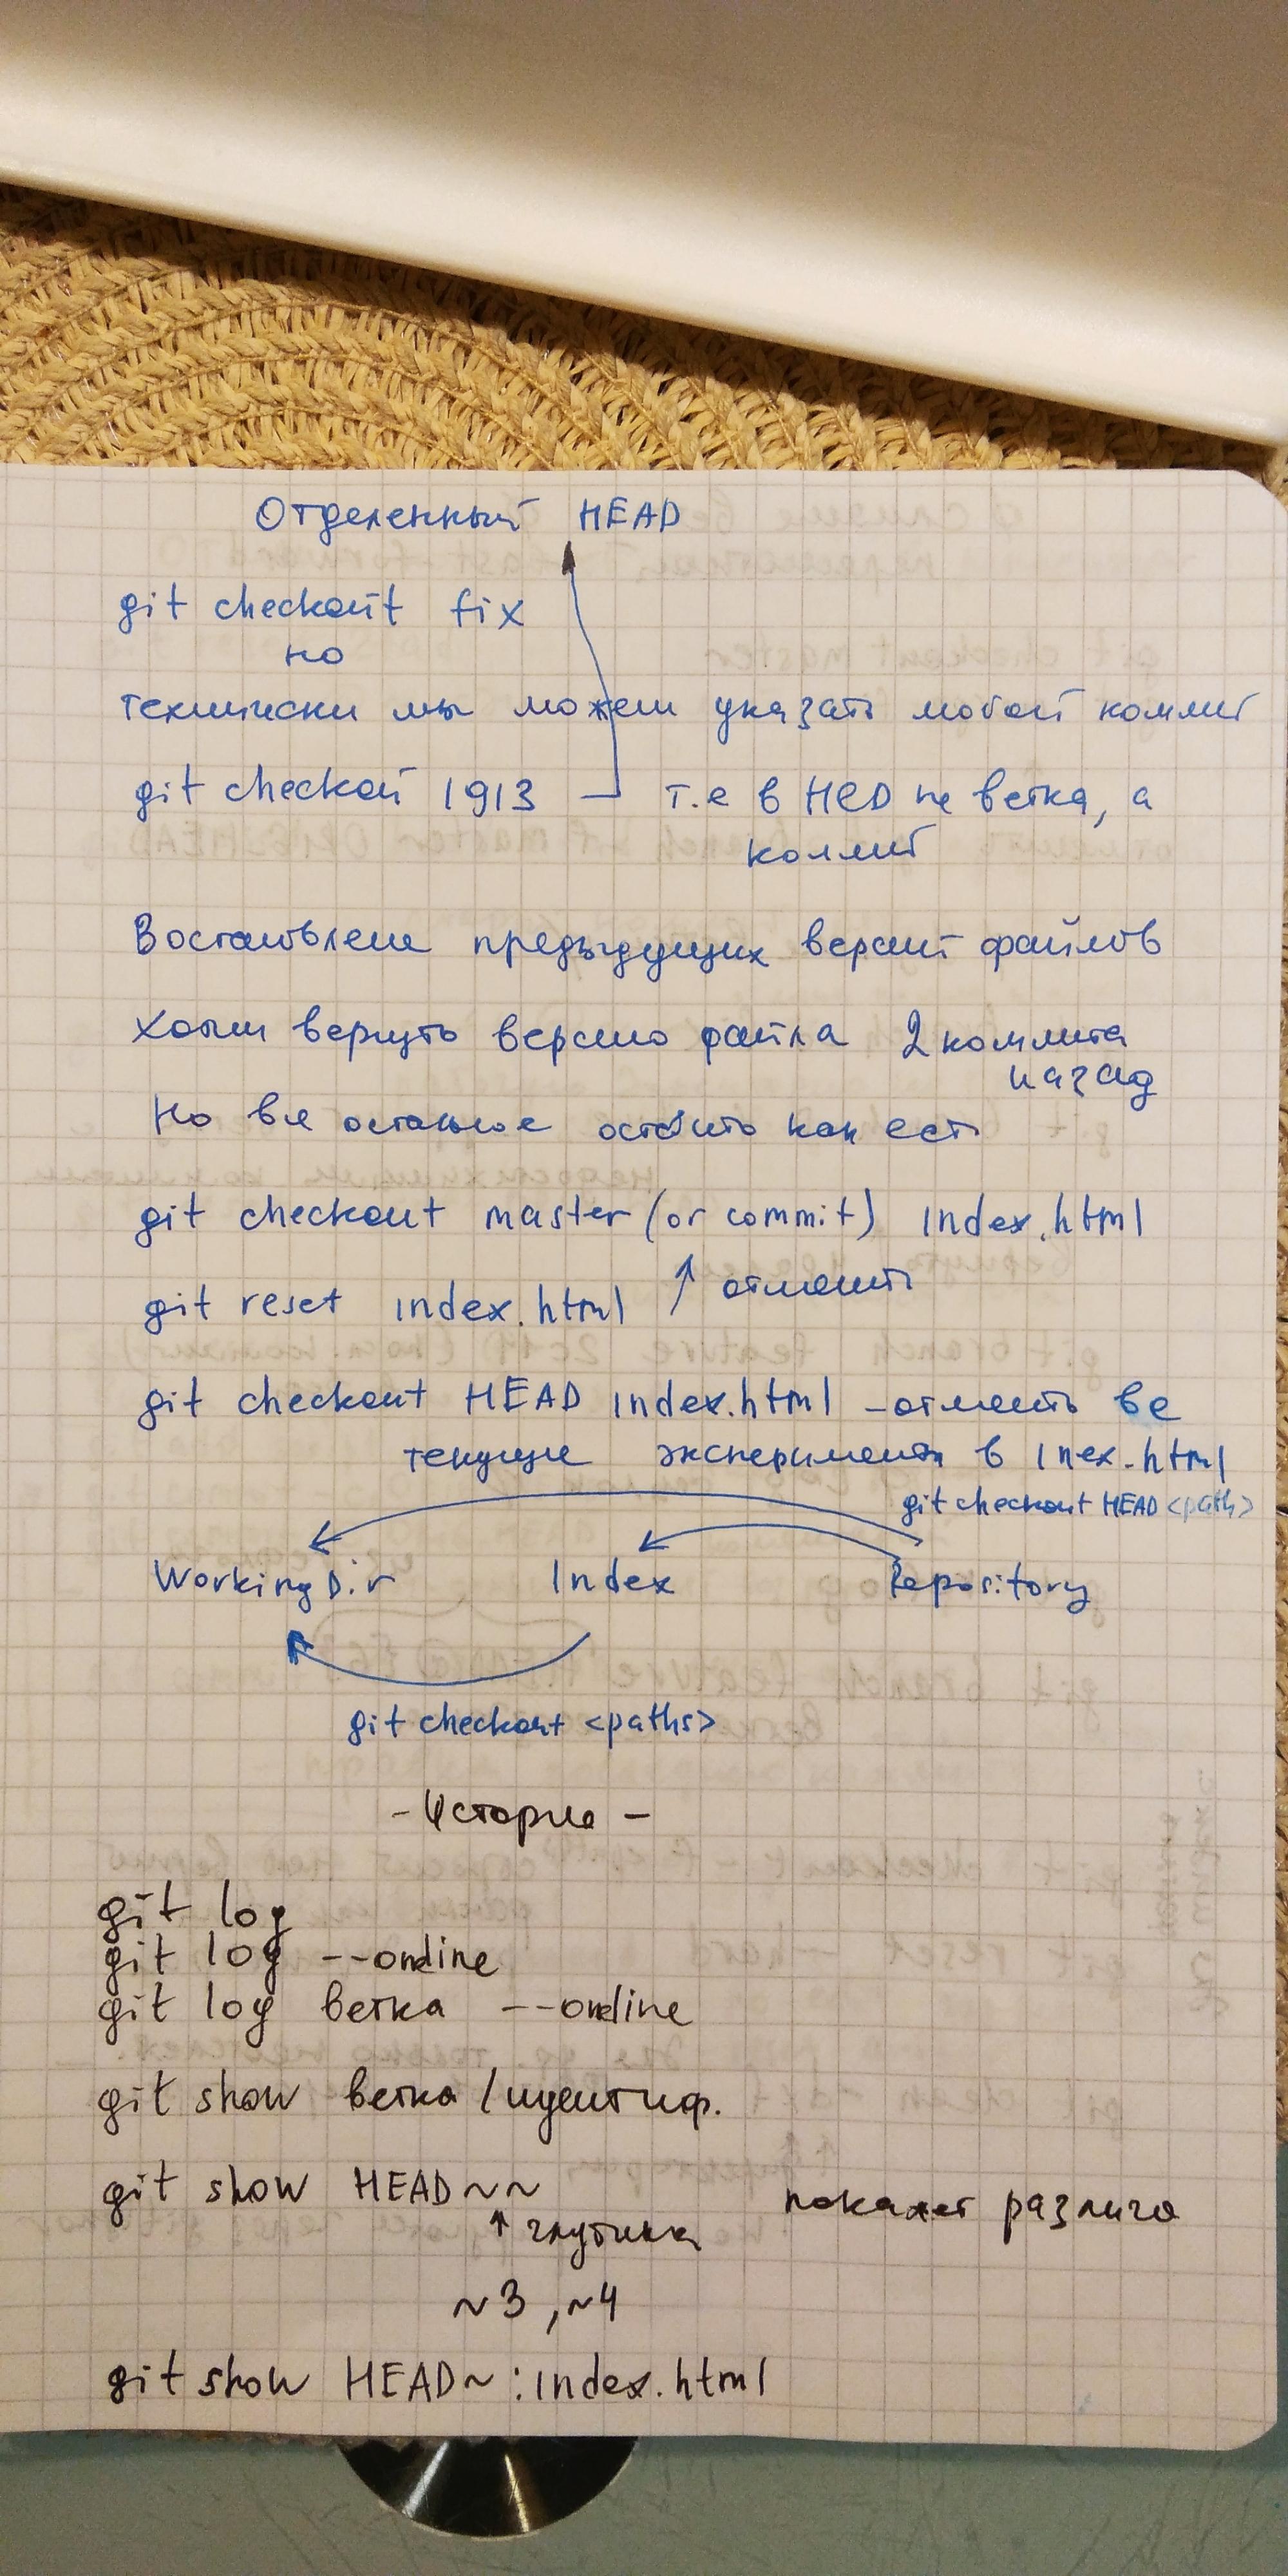 Отделенный HEAD
git checkout fix
но
технически мы можем указать любой коммит
git checkout 1913 — т.е в HED не ветка, а
коммит
Востановление предыдущих версий файлов
Хотим вернуть версию файла 2 коммита
назад
Но все остальное оставить как есть
git checkout master (or commit) index.html
git reset index.html ↑ отменить
git checkout HEAD index.html - отменить все
текущие эксперименты в inex.html
git checkout HEAD <path>
Working Dir Index Repository
git checkout <paths>
- История -
git log
git log --oneline
git log ветка --oneline
git show ветка / идентиф.
git show HEAD~~ покажет различия
↑ глубина
~3, ~4
git show HEAD~:index.html